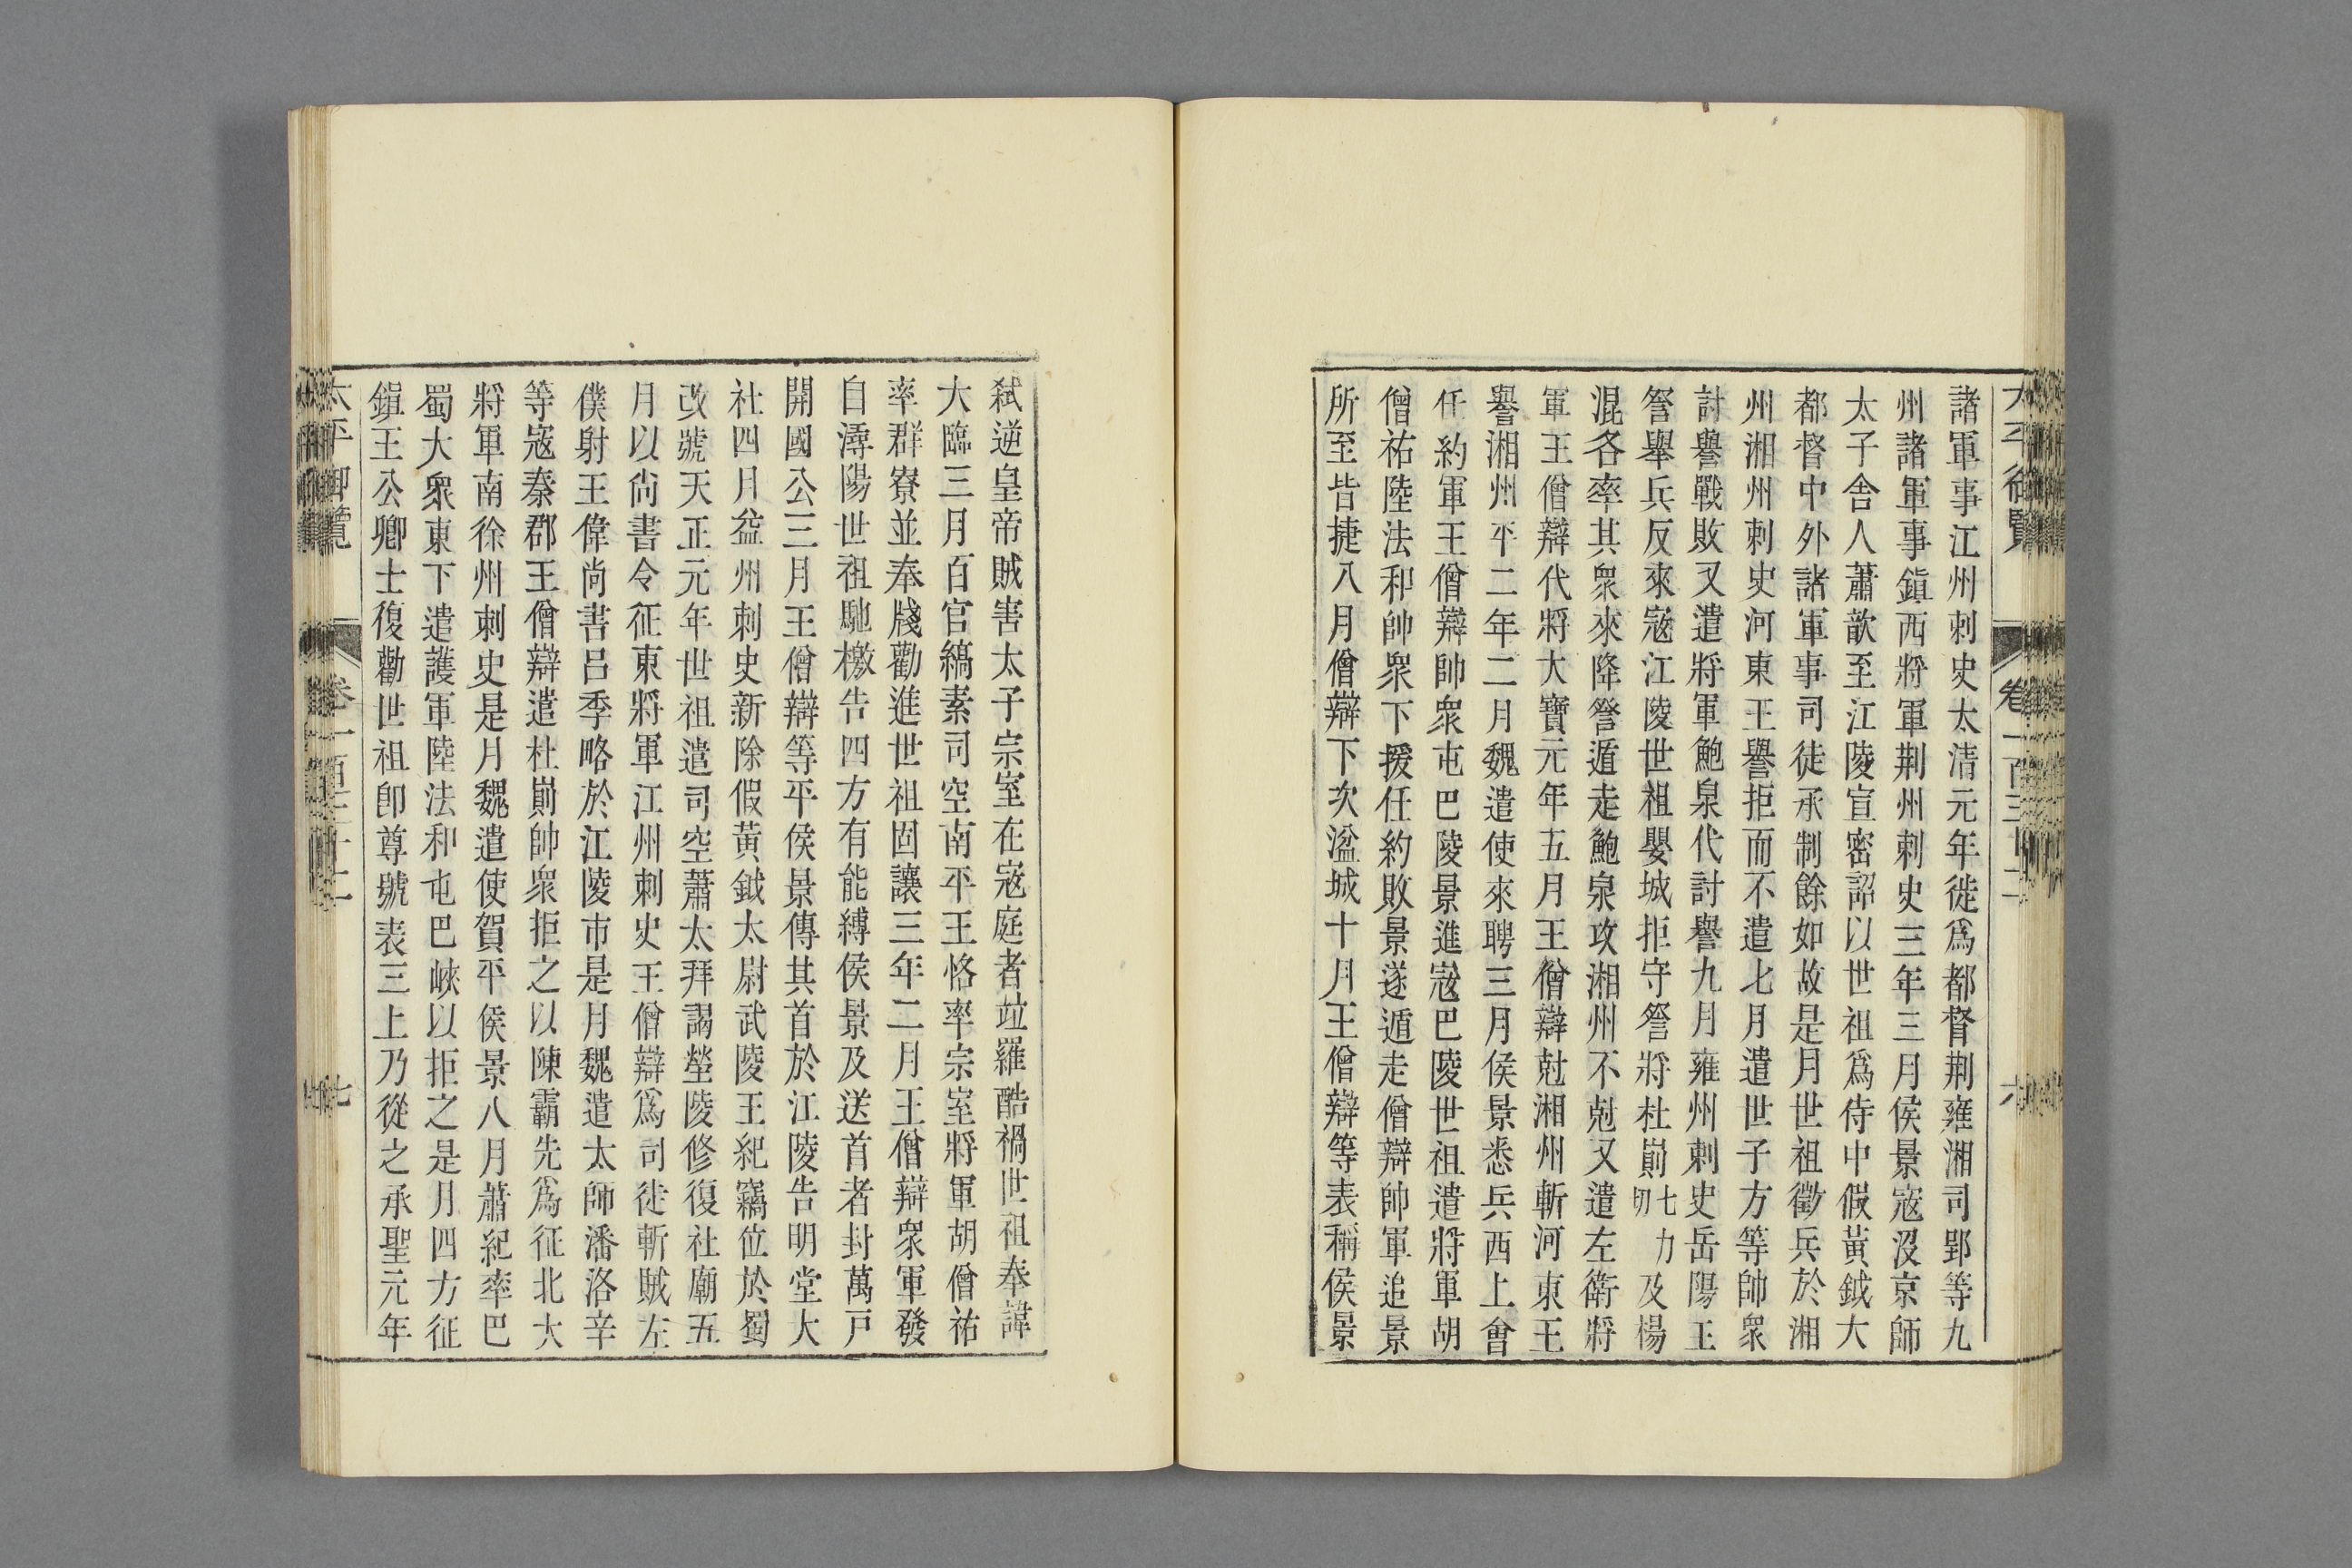 諸軍事江州刺史太清元年徙爲都督荆雍湘司郢等九
州諸軍事鎮西將軍荆州刺史三年三月侯景寇沒京師
太子舍人蕭歆至江陵宣密詔以世祖爲侍中假黃鉞大
都督中外諸軍事司徒承制餘如故是月世祖徵兵於湘
州湘州刺史河東王譽拒而不遣七月遣世子方等帥衆
討譽戰敗又遣將軍鮑泉代討譽九月雍州刺史岳陽王
詧舉兵反來寇江陵世祖嬰城拒守詧將杜崱七力切及楊
混各率其衆來降詧遁走鮑泉攻湘州不尅又遣左衛將
軍王僧辯代將大寶元年五月王僧辯尅湘州斬河東王
譽湘州平二年二月魏遣使來聘三月侯景悉兵西上會
任約軍王僧辯帥衆屯巴陵景進寇巴陵世祖遣將軍胡
僧祐陸法和帥衆下援任約敗景遂遁走僧辯帥軍追景
所至皆捷八月僧辯下次湓城十月王僧辯等表稱侯景
弑逆皇帝賊害太子宗室在寇庭者竝羅酷禍世祖奉諱
大臨三月百官縞素司空南平王恪率宗室將軍胡僧祐
率群寮並奉牋勸進世祖固讓三年二月王僧辯衆軍發
自潯陽世祖馳檄告四方有能縛侯景及送首者封萬戸
開國公三月王僧辯等平侯景傳其首於江陵告明堂大
社四月益州刺史新除假黃鉞太尉武陵王紀竊位於蜀
改號天正元年世祖遣司空蕭太拜謁塋陵修復社廟五
月以尙書令征東將軍江州刺史王僧辯爲司徒斬賊左
僕射王偉尚書呂季略於江陵市是月魏遣太師潘洛辛
等寇秦郡王僧辯遣杜崱帥衆拒之以陳霸先爲征北大
將軍南徐州刺史是月魏遣使賀平侯景八月蕭紀率巴
蜀大衆東下遣護軍陸法和屯巴峽以拒之是月四方征
鎮王公卿士復勸世祖卽尊號表三上乃從之承聖元年
太平御覽 卷一百三十二 七